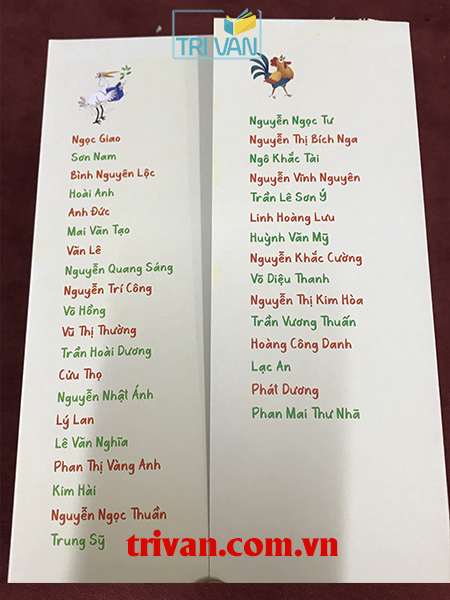 TRI VAN
Ngọc Giao
Sơn Nam
Bình Nguyên Lộc
Hoài Anh
Anh Đức
Mai Văn Tạo
Văn Lê
Nguyễn Quang Sáng
Nguyễn Trí Công
Võ Hồng
Vũ Thị Thường
Trần Hoài Dương
Cửu Thọ
Nguyễn Nhật Ánh
Lý Lan
Lê Văn Nghĩa
Phan Thị Vàng Anh
Kim Hài
Nguyễn Ngọc Thuần
Trung Sỹ
Nguyễn Ngọc Tư
Nguyễn Thị Bích Nga
Ngô Khắc Tài
Nguyễn Vĩnh Nguyên
Trần Lê Sơn Ý
Linh Hoàng Lưu
Huỳnh Văn Mỹ
Nguyễn Khắc Cường
Võ Diệu Thanh
Nguyễn Thị Kim Hòa
Trần Vương Thuấn
Hoàng Công Danh
Lạc An
Phát Dương
Phan Mai Thư Nhã
trivan.com.vn